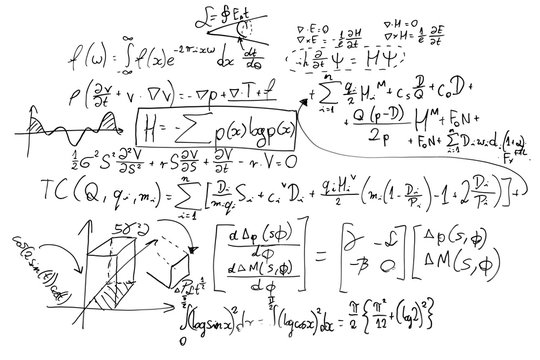 L = ∮E_n t
f(ω) = ∫_{-∞}^{∞} f(x)e^{-2πixω} dx
dt/dθ
∇·E=0 ∇·H=0
∇×E = -1/c ∂H/∂t ∇×H = 1/c ∂E/∂t
iħ ∂/∂t Ψ = HΨ
ρ(∂v/∂t + v · ∇v) = -∇p + ∇·T + f
+ Σ_{i=1}^{n} q_i/2 H_i^M + c_s D/Q + c_o D +
H = -Σ p(x) log p(x)
+ Q(p-D)/2p H^M + F_oN +
+ F_oN + Σ_{i=1}^{n} D_i w_i d_i
1/2 σ² S² ∂²V/∂S² + rS ∂V/∂S + ∂V/∂t - r·V = 0
TC(Q, q_i, m_i) = Σ_{i=1}^{n} [D_i/m_i q_i S_i + c_i^v D_i + q_i H_i^v/2 (m_i(1 - D_i/P_i) - 1 + 2 D_i/P_i)] +
[dΔp(s,φ)/dφ dΔM(s,φ)/dφ] = [γ -L -β 0] [Δp(s,φ) ΔM(s,φ)]
∫_0^{π/2} (log sin x)² dx = ∫ (log cos x)² dx = π/2 {π²/12 + (log 2)²}